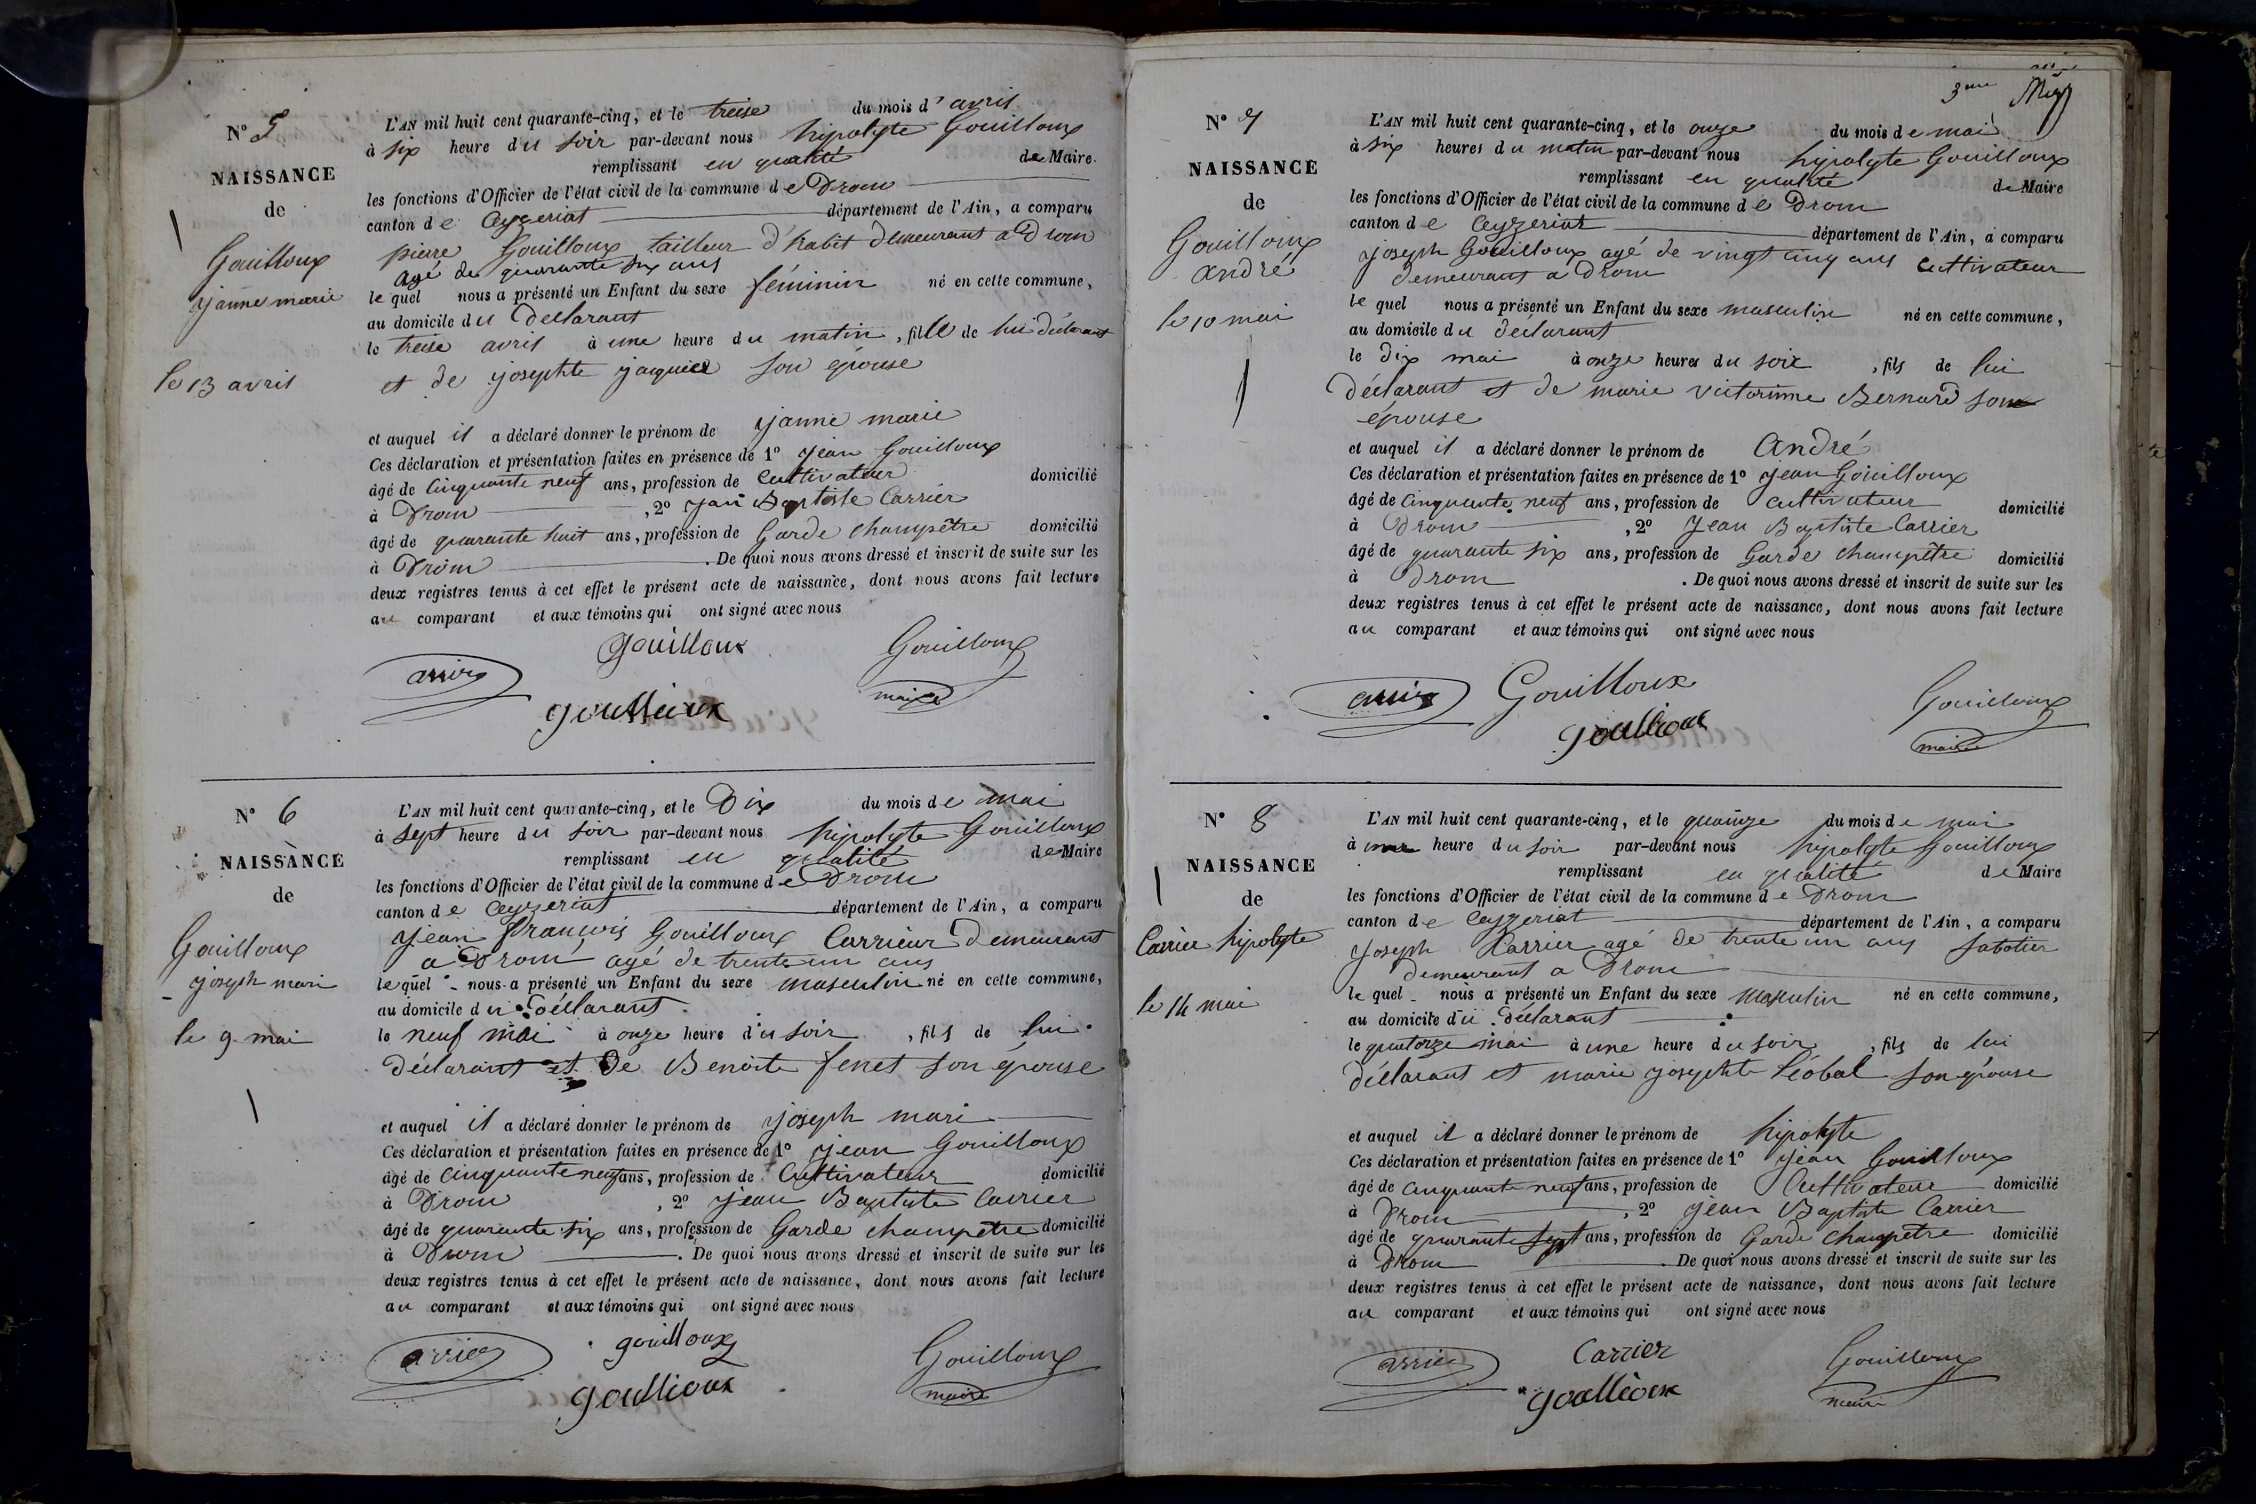 N° 5
NAISSANCE
de
Gouilloux
janne marie
le 13 avril
L'AN mil huit cent quarante-cinq, et le treise du mois d'avril
à six heure du soir par-devant nous hipolyte Gouilloux
remplissant en qualité de Maire
les fonctions d'Officier de l'état civil de la commune de Drom
canton de Ceyzeriat département de l'Ain, a comparu
pierre Gouilloux tailleur d'habit demeurant a Drom
agé de quarante six ans
le quel nous a présenté un Enfant du sexe féminin né en cette commune,
au domicile du declarant
le treise avril à une heure du matin, fille de lui déclarant
et de josephte jaquier son épouse
et auquel il a déclaré donner le prénom de janne marie
Ces déclaration et présentation faites en présence de 1° jean Gouilloux
âgé de cinquante neuf ans, profession de cultivateur domicilié
à Drom, 2° jan Baptiste Carrier
âgé de quarante huit ans, profession de Garde champêtre domicilié
à Drom. De quoi nous avons dressé et inscrit de suite sur les
deux registres tenus à cet effet le présent acte de naissance, dont nous avons fait lecture
au comparant et aux témoins qui ont signé avec nous
gouilloux Gouilloux
maire
goullioux
N° 6
NAISSANCE
de
Gouilloux
joseph mari
le 9 mai
L'AN mil huit cent quarante-cinq, et le Dix du mois de mai
à sept heure du soir par-devant nous hipolyte Gouilloux
remplissant en qualité de Maire
les fonctions d'Officier de l'état civil de la commune de Drom
canton de Ceyzeriat département de l'Ain, a comparu
jean francois Gouilloux Carrieur demeurant
a Drom agé de trente un ans
le quel nous a présenté un Enfant du sexe masculin né en cette commune,
au domicile du déclarant
le neuf mai à onze heure du soir, fils de lui
déclarant et de Benoite fenet son épouse
et auquel il a déclaré donner le prénom de joseph mari
Ces déclaration et présentation faites en présence de 1° jean Gouilloux
âgé de cinquante neuf ans, profession de Cultivateur domicilié
à Drom, 2° jean Baptiste Carrier
âgé de quarante six ans, profession de Garde champetre domicilié
à Drom. De quoi nous avons dressé et inscrit de suite sur les
deux registres tenus à cet effet le présent acte de naissance, dont nous avons fait lecture
au comparant et aux témoins qui ont signé avec nous
arrier gouilloux Gouilloux
maire
goullioux
3me
N° 7
NAISSANCE
de
Gouilloux
andré
le 10 mai
L'AN mil huit cent quarante-cinq, et le onze du mois de mai
à six heures du matin par-devant nous hipolyte Gouilloux
remplissant en qualité de Maire
les fonctions d'Officier de l'état civil de la commune de Drom
canton de Ceyzeriat département de l'Ain, a comparu
joseph Gouilloux agé de vingt cinq ans cultivateur
demeurant a Drom
le quel nous a présenté un Enfant du sexe masculin né en cette commune,
au domicile du déclarant
le dix mai à onze heures du soir, fils de lui
déclarant et de marie victorinne Bernard son
épouse
et auquel il a déclaré donner le prénom de André
Ces déclaration et présentation faites en présence de 1° jean Gouilloux
âgé de cinquante neuf ans, profession de cultivateur domicilié
à Drom, 2° jean Baptiste Carrier
âgé de quarante six ans, profession de Garde champêtre domicilié
à Drom. De quoi nous avons dressé et inscrit de suite sur les
deux registres tenus à cet effet le présent acte de naissance, dont nous avons fait lecture
au comparant et aux témoins qui ont signé avec nous
Gouilloux Gouilloux
maire
goullioux
N° 8
NAISSANCE
de
Carrier hipolyte
le 14 mai
L'AN mil huit cent quarante-cinq, et le quainze du mois de mai
à une heure du soir par-devant nous hipolyte Gouilloux
remplissant en qualité de Maire
les fonctions d'Officier de l'état civil de la commune de Drom
canton de Ceyzeriat département de l'Ain, a comparu
joseph Carrier agé de trente un ans sabotier
demeurant a Drom
le quel nous a présenté un Enfant du sexe masculin né en cette commune,
au domicile du déclarant
le quatorze mai à une heure du soir, fils de lui
déclarant et marie josephte Léobal son épouse
et auquel il a déclaré donner le prénom de hipolyte
Ces déclaration et présentation faites en présence de 1° jean Gouilloux
âgé de cinquante neuf ans, profession de Cultivateur domicilié
à Drom, 2° jean Baptiste Carrier
âgé de quarante sept ans, profession de Garde champetre domicilié
à Drom. De quoi nous avons dressé et inscrit de suite sur les
deux registres tenus à cet effet le présent acte de naissance, dont nous avons fait lecture
au comparant et aux témoins qui ont signé avec nous
arrier Carrier Gouilloux
maire
goullioux